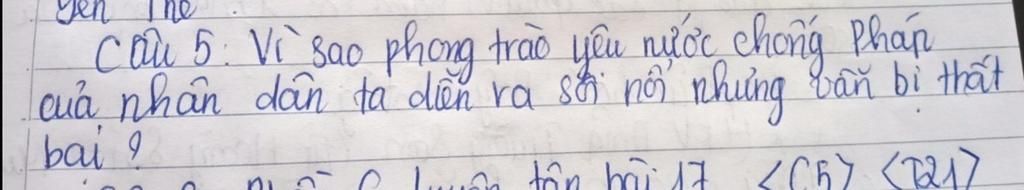 yên Thế
Câu 5: Vì sao phong trào yêu nước chống Pháp
của nhân dân ta diễn ra sôi nổi nhưng vẫn bị thất
bại?
tập bài 17 <C5> <T21>